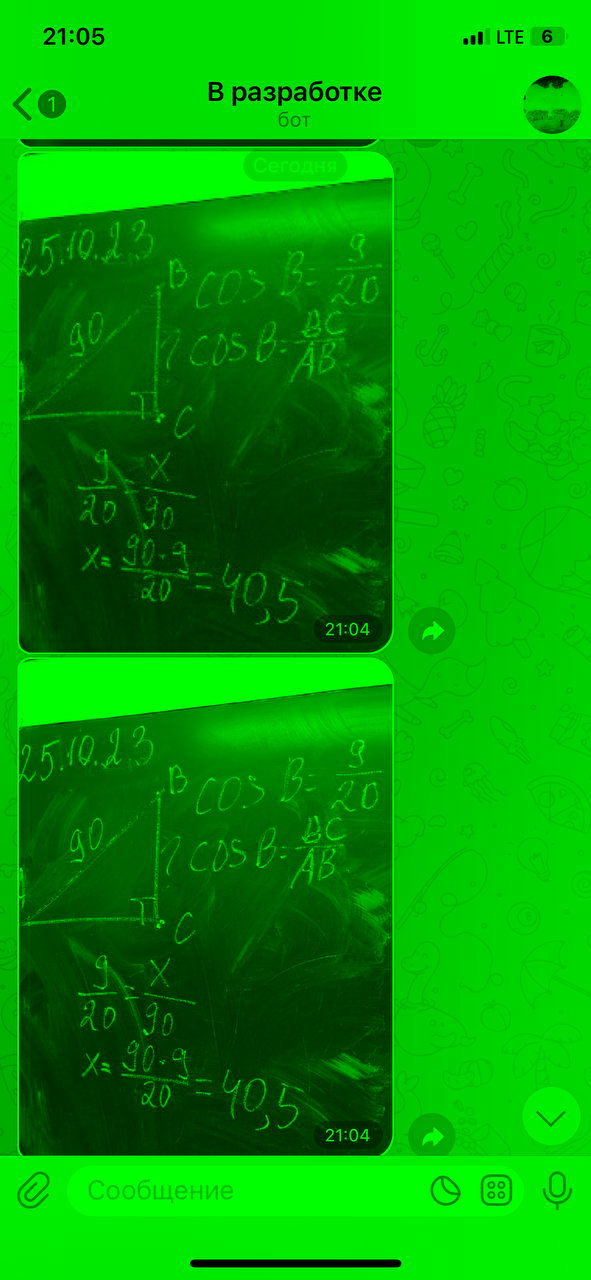 21:05
LTE 6
1
В разработке
бот
Сегодня
25.10.23
B
cos B = 9/20
90
? cos B = BC/AB
C
9/20 = x/90
x = 90·9/20 = 40,5
21:04
25.10.23
B
cos B = 9/20
90
? cos B = BC/AB
C
9/20 = x/90
x = 90·9/20 = 40,5
21:04
Сообщение